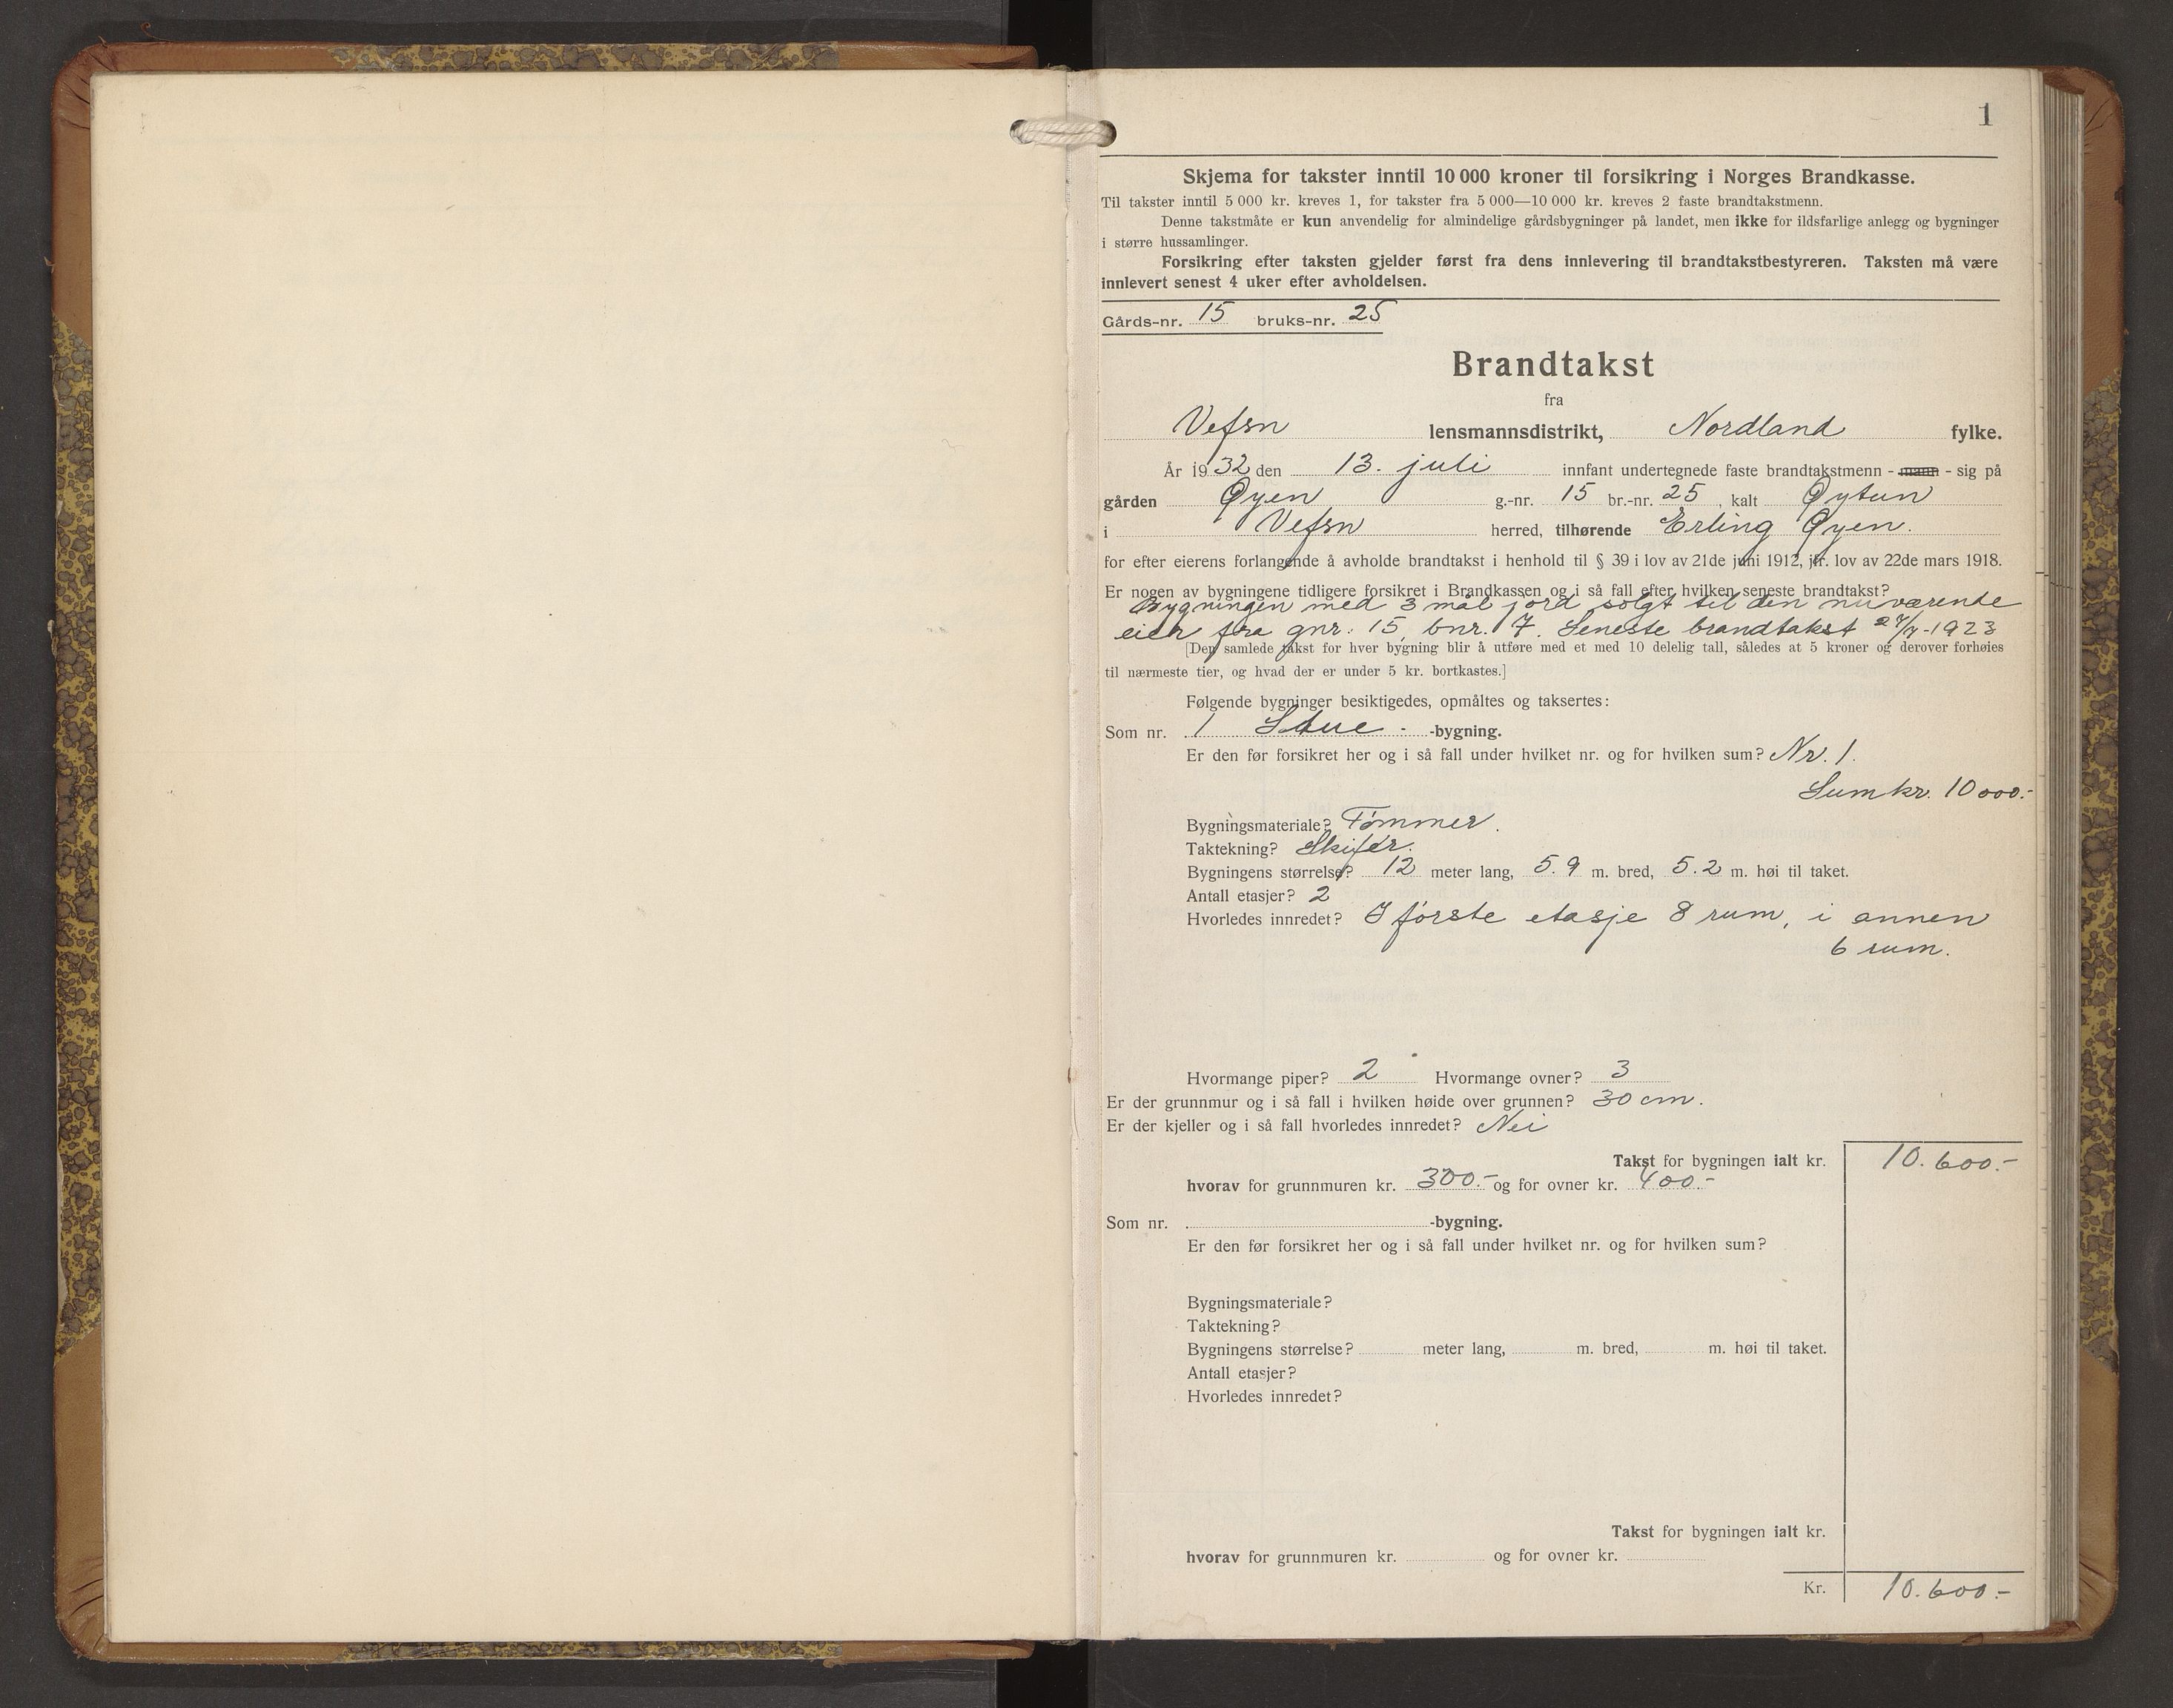 1
Skjema for takster inntil 10 000 kroner til forsikring i Norges Brandkasse.
Til takster inntil 5 000 kr. kreves 1, for takster fra 5 000—10 000 kr. kreves 2 faste brandtakstmenn.
Denne takstmåte er kun anvendelig for almindelige gårdsbygninger på landet, men ikke for ildsfarlige anlegg og bygninger
i større hussamlinger.
Forsikring efter taksten gjelder først fra dens innlevering til brandtakstbestyreren. Taksten må være
innlevert senest 4 uker efter avholdelsen.
Gårds-nr. 15 bruks-nr. 25
Brandtakst
fra
Vefsn lensmannsdistrikt, Nordland fylke.
År 1932 den 13. juli innfant undertegnede faste brandtakstmenn - mann - sig på
gården Øyen g.-nr. 15 br.-nr. 25, kalt Øytun
i Vefsn herred, tilhørende Erling Øyen.
for efter eierens forlangende å avholde brandtakst i henhold til § 39 i lov av 21de juni 1912, jfr. lov av 22de mars 1918.
Er nogen av bygningene tidligere forsikret i Brandkassen og i så fall efter hvilken seneste brandtakst?
Bygningen med 3 mål jord solgt til den nuværende
eier fra gnr. 15, bnr. 7. Seneste brandtakst 27/7-1923
[Den samlede takst for hver bygning blir å utføre med et med 10 delelig tall, således at 5 kroner og derover forhøies
til nærmeste tier, og hvad der er under 5 kr. bortkastes.]
Følgende bygninger besiktigedes, opmåltes og taksertes:
Som nr. 1 Stue - -bygning.
Er den før forsikret her og i så fall under hvilket nr. og for hvilken sum? Nr. 1.
Sum kr. 10 000.-
Bygningsmateriale? Tømmer.
Taktekning? Skifer.
Bygningens størrelse? 12 meter lang, 5.9 m. bred, 5.2 m. høi til taket.
Antall etasjer? 2
Hvorledes innredet? I første etasje 8 rum, i annen
6 rum.
Hvormange piper? 2 Hvormange ovner? 3
Er der grunnmur og i så fall i hvilken høide over grunnen? 30 cm.
Er der kjeller og i så fall hvorledes innredet? Nei
Takst for bygningen ialt kr. 10.600.-
hvorav for grunnmuren kr. 300.- og for ovner kr. 400.-
Som nr. -bygning.
Er den før forsikret her og i så fall under hvilket nr. og for hvilken sum?
Bygningsmateriale?
Taktekning?
Bygningens størrelse? meter lang, m. bred, m. høi til taket.
Antall etasjer?
Hvorledes innredet?
Takst for bygningen ialt kr.
hvorav for grunnmuren kr. og for ovner kr.
Kr. 10.600.-